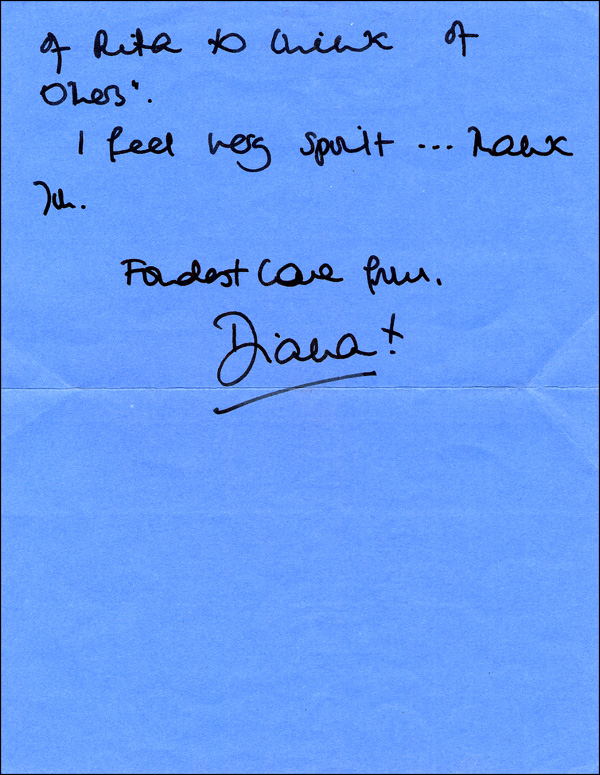 of Rita to think of
others".
I feel very spoilt ... thank
you.
Fondest Love from.
Diana x